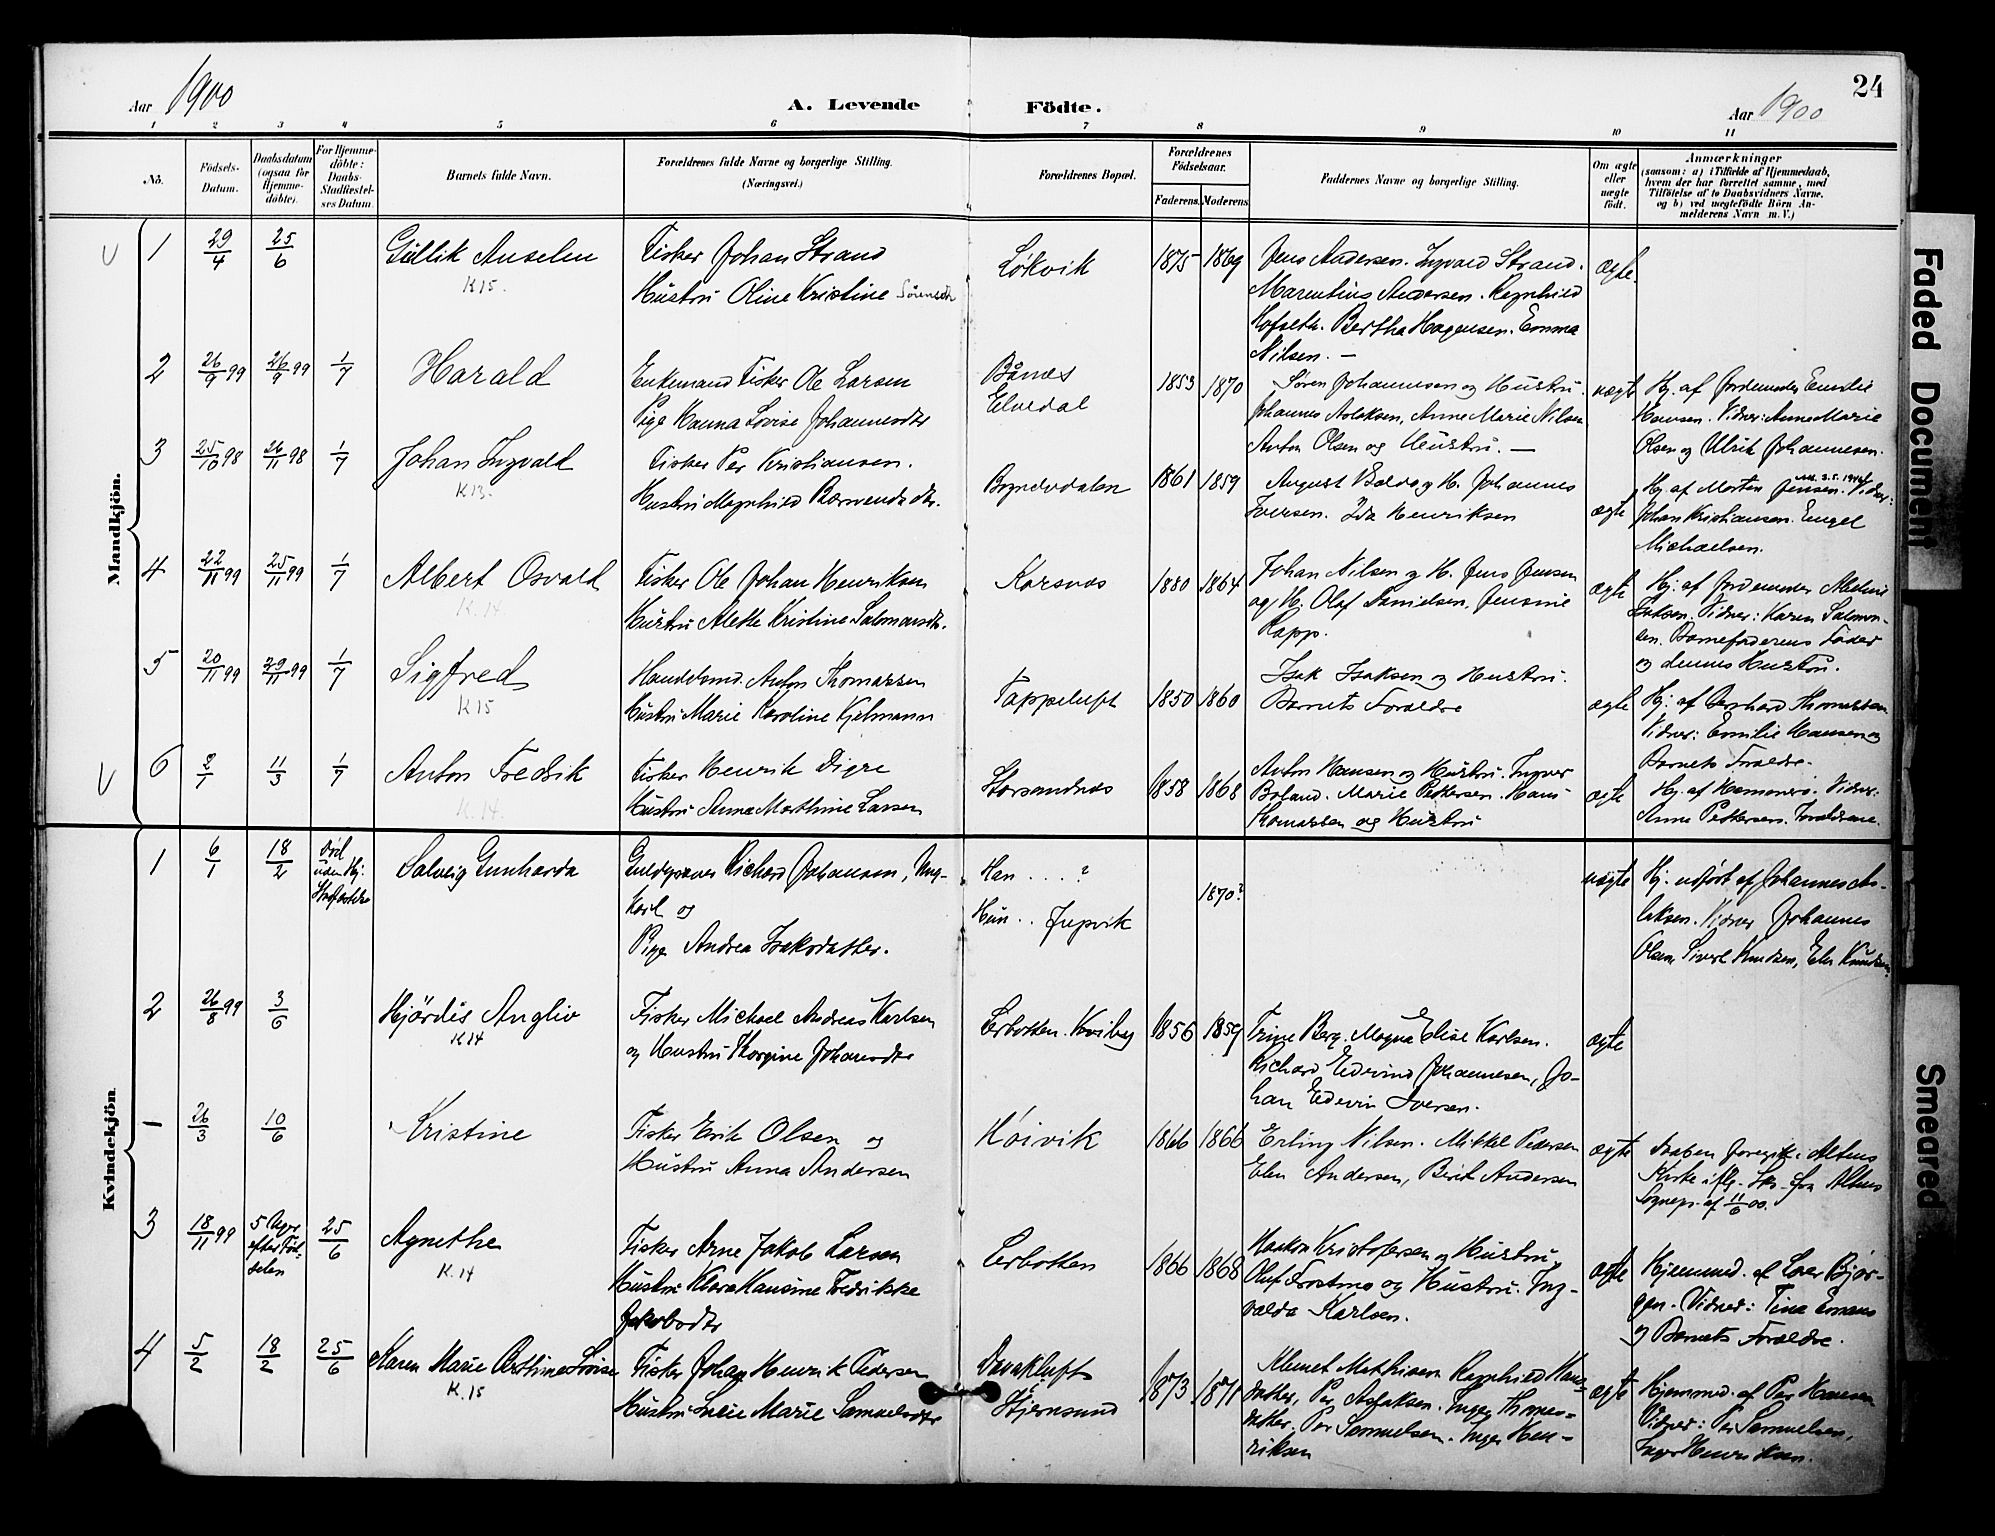 24
Aar 1900
A. Levende Födte.
Aar 1900
1 2 3 4 5 6 7 8 9 10 11
No.
Födsels-Datum.
Daabsdatum (ogsaa for Hjemme-döbte).
For Hjemme-döbte: Daabs-Stadfæstel-ses Datum.
Barnets fulde Navn.
Forældrenes fulde Navne og borgerlige Stilling. (Næringsvei.)
Forældrenes Bopæl.
Forældrenes Födselsaar.
Faderens. Moderens.
Faddernes Navne og borgerlige Stilling.
Om ægte eller uægte födt.
Anmærkninger
(saasom: a) i Tilfælde af Hjemmedaab, hvem der har forrettet samme, med Tilföielse af to Daabsvidners Navne, og b) ved uægtefödte Börn An-melderens Navn m. V.)
Mandkjön.
1 29/4 25/6
Gullik Anselm
K 15.
Fisker Johan Strand
Hustru Oline Kristine
Løkvik
1875 1869
Jens Andersen. Ingvald Strand.
Marentius Andersen. Ragnhild
Hofseth. Bertha Hagensen. Emma
Nilsen. —
ægte.
2 26/9 99 26/9 99 1/7
Harald
Enkemand Fisker Ole Larsen
Pige Hanna Lovise Johannesdtr
Elvedal
1853 1870
Søren Johannesen og Hustru.
Johannes Aslaksen, Anne Marie Nilsen
Anton Olsen og Hustru. —
uægte
Hj. af Jordemoder Emilie
Hansen. Vidner: Anne Marie
Olsen og Ulrik Johannesen.
3 25/10 98 26/11 98 1/7
Johan Ingvald
K 13.
Fisker Per Kristiansen.
Hustru Magnhild
1861 1859
August Balda og H. Johannes
Iversen. Ida Henriksen
ægte
Hj. af Morten Jensen. Vidner:
Johan Kristiansen. Engel
Michaelsen.
4 22/11 99 25/11 99 1/7
Albert Osvald
K. 14
Fisker Ole Johan Henriksen
Hustru Alette Kristine Salomonsdtr.
Korsnes
1880 1864
Johan Nilsen og H. Jens Jensen
og H. Olaf Danielsen, Jensine
Rapp.
ægte
Hj. af Jordemoder
Isaksen. Vidner: Karen Salomon-
sen. Barnefaderens Fader
og dennes Hustru.
5 20/11 99 29/11 99 1/7
Sigfred
K 15
Handelsmd. Anton Thomassen
Hustru Marie Karoline Kjelmann
Tappeluft
1850 1860
Isak Isaksen og Hustru.
Barnets Forældre
ægte
Hj. af Bernhard Thomassen
Vidner: Emilie Hansen og
Barnets Forældre.
6 2/1 11/3 1/7
Anton Fredrik
K. 14.
Fisker Henrik Digre
Hustru Anna Marthine Larsen
Storsandnes
1858 1868
Anton Hansen og Hustru. Ingver
Boland. Marie Pettersen. Hans
Thomassen og Hustru
ægte
Hj. af Vidner:
Anne Pettersen. Forældrene.
Kvindekjön
1 6/1 18/2
död uden Hj.
Solveig Gunharda
Guldgraver Richard Johansen, Ung-
karl og
Pige Andrea Isaksdatter.
Han . . . . ?
Hun . . Jupvik
1870?
uægte
Hj. udført af Johannes As-
laksen. Vidner Johannes
Olsen, Sivert Knudsen, Elen Knudsen
2 26/8 99 3/6
Hjördis Angliv
K 14
Fisker Michael Andreas Karlsen
og Hustru Thorgine Johansdtr
Lerbotten. Kviby
1856 1859
Trine Berg. Magna Elise Karlsen.
Richard Edvind Johannesen, Jo-
han Edevin Iversen.
ægte
— 26/3 10/6
Kristine
Fisker Erik Olsen og
Hustru Anna Andersen
Høivik
1866 1866
Erling Nilsen. Mikkel Pedersen
Elen Andersen, Berit Andersen
ægte
Daaben foregik i Altens
Kirke iflg. Sk. fra Altens
Sognepr. af 11/6 00.
3 18/11 99 5 Uger efter Föd-selen 25/6
Agnethe
K. 14
Fisker Arne Jakob Larsen
Hustru Klara Hansine Fredrikke
Jakobsdtr
Lerbotten
1866 1868
Haakon Kristofersen og Hustru,
Oluf Frostmo og Hustru. Ing-
valda Karlsen.
ægte
Hjemmed. af Lars Bjør-
gen. Vidner: Tina Evans
og Barnets Forældre.
4 5/2 18/2 25/6
Karen Marie Lovise
K. 15
Fisker Johan Henrik Pedersen
Hustru Lucie Marie Samuelsdtr
Danskluft
Stjernsund
1873 1871
Klemet Mathisen Ragnhild Hans-
datter, Per Aslaksen. Inger Thomas-
datter, Per Samuelsen. Inger Hen-
riksen
ægte
Hjemmed. af Per Hansen
Vidner: Per Samuelsen,
Inger Henriksen.
Faded Document
Smeared